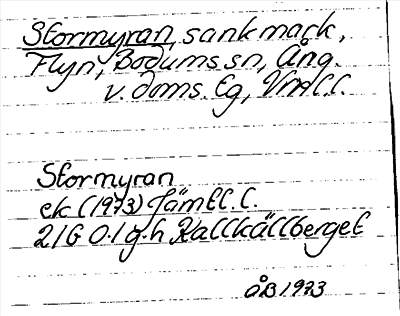 Stormyran, sankmark,
Flyn, Bodums sn, Ång.
v. doms. Eg, Vnl.l.
Stormyran
ek (1973) Jämtl.l.
21G 0-1 g-h Kallkällberget
ÅB 1973